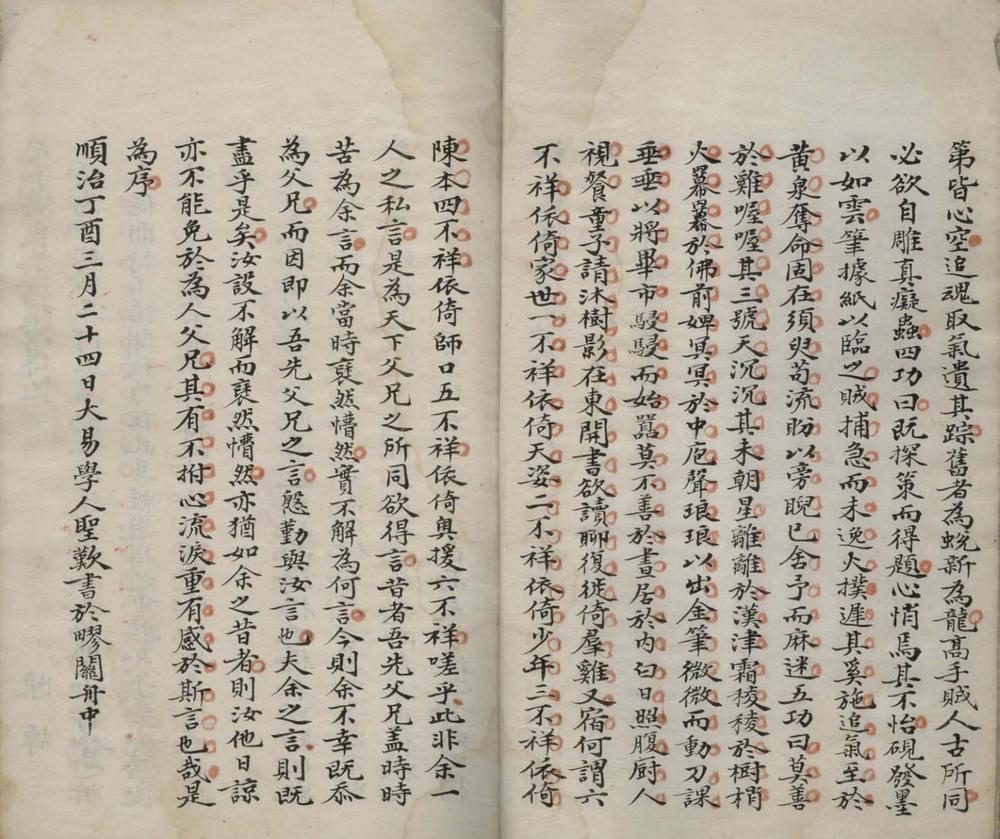 第皆心空追魂取氣遺其踪舊者為蛻新為龍高手賊人古所同
必欲自雕真癡蟲四功曰既探策而得題心悄焉其不怡硯發墨
以如雲筆據紙以臨之賊捕急而未逸火撲遲其奚施追氣至於
黃泉奪命固在須臾苟流盼以旁睨已舍予而麻迷五功曰莫善
於雞喔喔其三號天沉沉其未朝星離離於漢津霜稜稜於樹梢
火冪冪於佛前婢冥冥於中庖聲琅琅以出金筆微微而動刀課
垂垂以將畢市駸駸而始囂莫不善於晝居於內白日照腹廚人
視餐童子請沐樹影在東開書欲讀聊復徙倚羣雞又宿何謂六
不祥依倚家世一不祥依倚天姿二不祥依倚少年三不祥依倚
陳本四不祥依倚師口五不祥依倚奧援六不祥嗟乎此非余一
人之私言是為天下父兄之所同欲得言昔者吾先父兄蓋時時
苦為余言而余當時裒然懵然實不解為何言今則余不幸既忝
為父兄而因即以吾先父兄之言慇懃與汝言也夫余之言則既
盡乎是矣汝設不解而裒然懵然亦猶如余之昔者則汝他日諒
亦不能免於為人父兄其有不拊心流淚重有感於斯言也哉是
為序
順治丁酉三月二十四日大易學人聖歎書於瘳關舟中